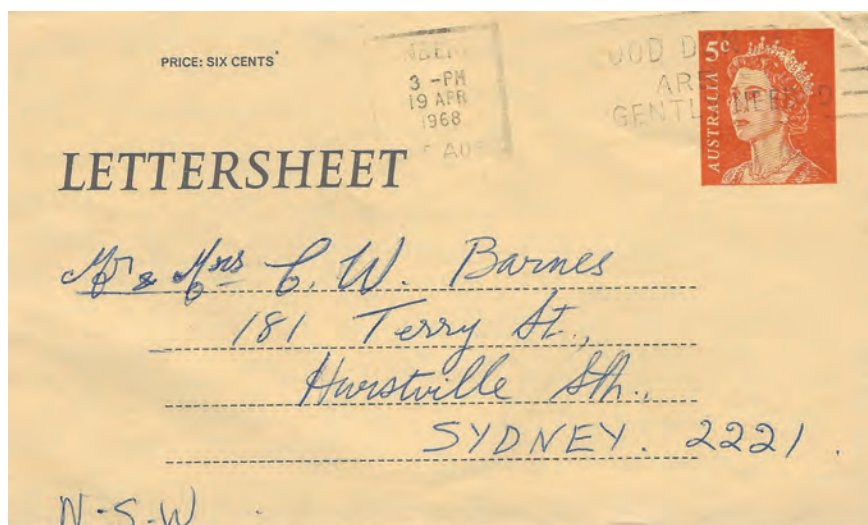 PRICE: SIX CENTS
3 - PM
19 APR
1968
ARE
GENTL NEEDED
5c
AUSTRALIA
LETTERSHEET
Mr & Mrs C. W. Barnes
181 Terry St.,
Hurstville Sth.,
SYDNEY. 2221.
N.S.W